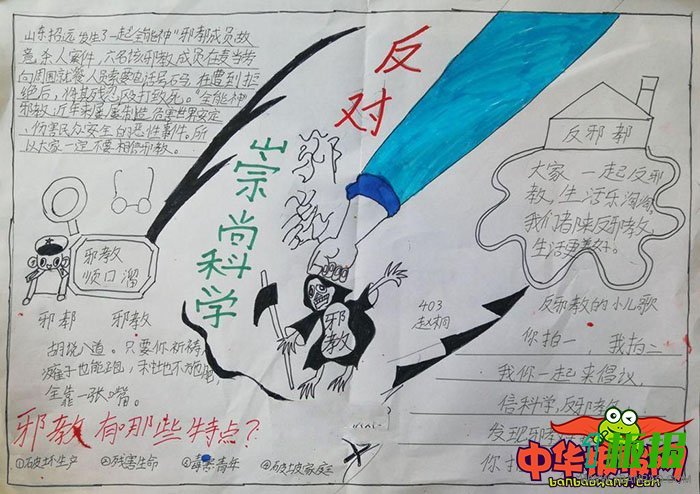 山东招远发生了一起全能神"邪教成员故
意杀人案件,六名该邪教成员在麦当劳
向周围就餐人员索要电话号码,在遭到拒
绝后,将其残忍殴打致死。"全能神"
邪教,近年来屡屡制造危害社会安定
、伤害民众安全的恶性事件。所
以大家一定不要相信邪教。
反对
邪教
崇尚科学
反邪教
大家一起反邪
教,生活乐淘淘
我们都来反邪教,
生活更美好。
邪教
顺口溜
邪教
邪教 邪教
胡说八道。只要你祈祷,
瘫子也能跑,
全靠一张嘴。
403
赵桐
反邪教的小儿歌
你拍一,我拍一
我们一起来倡议,
信科学,反邪教
发现邪教
你拍
邪教有那些特点?
①破坏生产 ②残害生命 ③毒害青年 ④破坡家庭
中华 报网
banbaowang.com